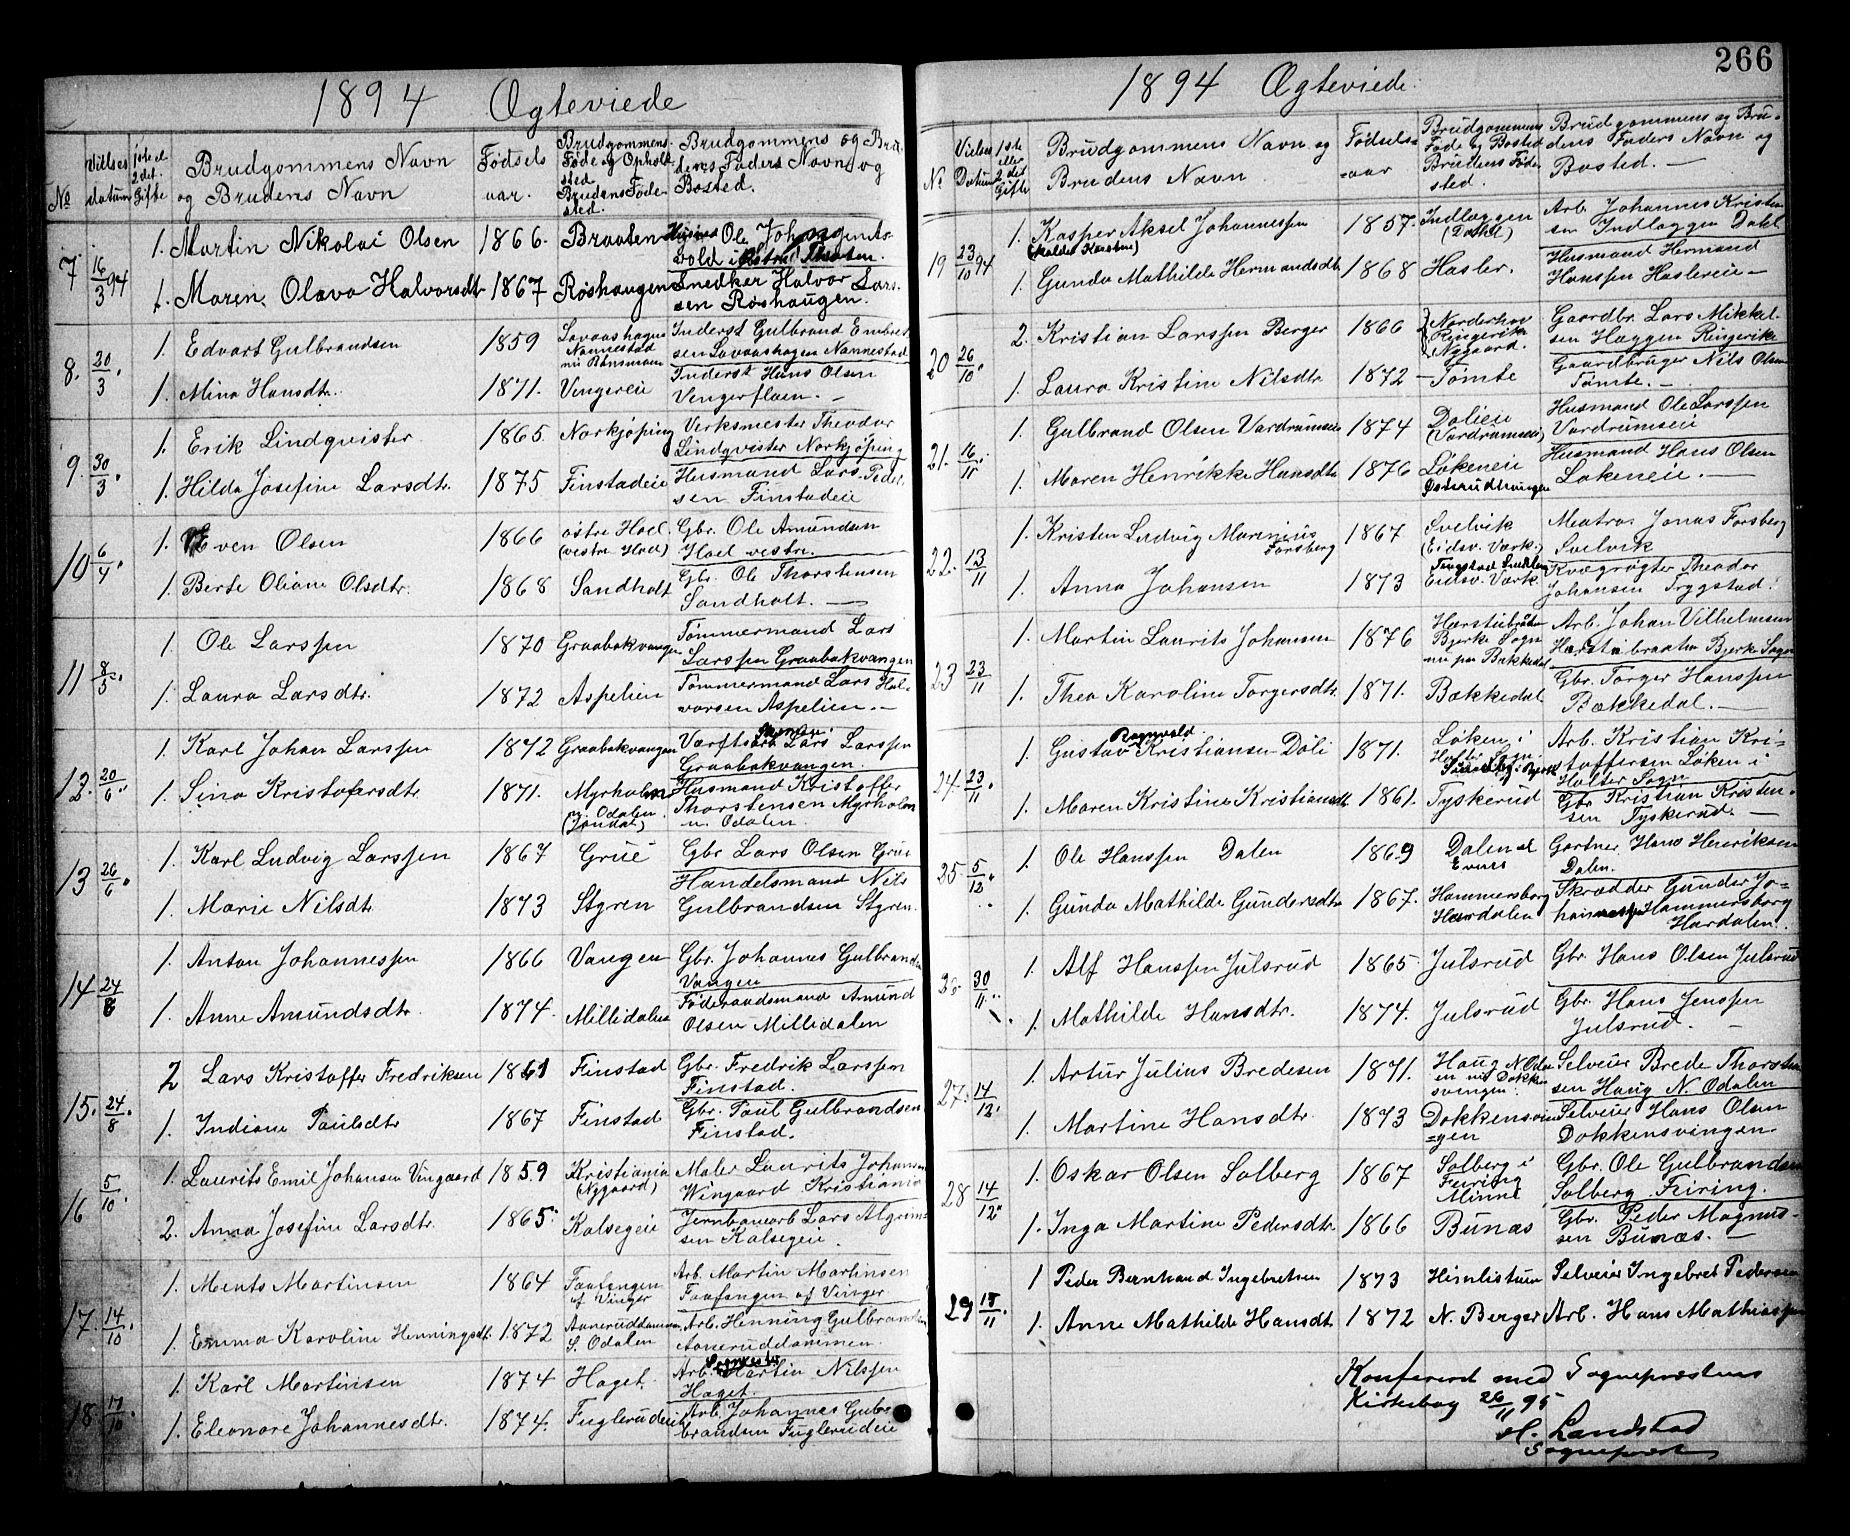 266
1894 Ægteviede
No
Vielses datum
1ste el. 2det Gifte
Brudgommens Navn og Brudens Navn
Fødsels aar.
Brudgommens Føde og Opholdsted Brudens Fødested.
Brudgommens og Brudens Faders Navn og Bosted.
7 16/3 94 1. Martin Nikolai Olsen 1866. Braaten Ole
1. Maren Olava Halvorsdtr 1867 Røshaugen Snedker Halvor Larssen Røshaugen.
8. 20/3. 1. Edvart Gulbrandsen 1859 Nannestad Inderst Gulbrand Embretsen Nannestad
1. Mina Hansdtr. 1871. Vengereie Inderst Hans Olsen Vengerflaen. —
9. 30/3 1. Erik Lindqvister 1865. Norkjøping Verksmester Theodor Lindqvister Norkjøping
1. Hilda Josefine Larsdtr. 1875 Finstadeie Husmand Lars Pedersen Finstadeie
10 6/4. 1. Even Olsen 1866 østre Hoel (vestre Hoel) Gbr. Ole Amundsen Hoel vestre.
1. Berte Oliane Olsdtr. 1868 Sandholt Gbr. Ole Thorstensen Sandholt. —
11 8/5. 1. Ole Larssen 1870 Graabakvangen Tømmermand Lars Larssen Graabakvangen
1. Laura Larsdtr. 1872 Aspelien Tømmermand Lars Halvorsen Aspelien. —
12. 20/6. 1. Karl Johan Larssen 1872 Graabakvangen Værftsarb. Lars Larssen Graabakvangen.
1. Sina Kristofersdtr 1871. Myrholm n. Odalen. Husmand Kristoffer Thorstensen Myrholm n. Odalen.
13 26/6. 1. Karl Ludvig Larssen 1867 Grue Gbr Lars Olsen Grue
1. Marie Nilsdtr. 1873 Styren Handelsmand Nils Gulbrandsen Styren.
14 24/8 1. Anton Johannessen 1866 Vangen Gbr. Johannes Gulbrandsen Vangen
1. Anne Amundsdtr. 1874. Millidalen Føderaadsmand Amund Olsen Millidalen
15. 24/8. 2 Lars Kristoffer Fredriksen 1861 Finstad Gbr. Fredrik Larssen Finstad.
1. Indiane Paulsdtr 1867 Finstad Gbr. Paul Gulbrandsen Finstad.
16 5/10. 1. Laurits Emil Johansen Vingaard 1859 Kristiania (Nygaard) Maler Laurits Johansen Wingaard Kristiania
2. Anna Josefine Larsdtr. 1865. Kalsegeie Jernbanearb Lars Algrimsen Kalsegeie.
17. 14/10. 1. Ments Martinsen 1864 Faafengen af Vinger Arb. Martin Martinsen Faafengen af Vinger
1. Emma Karoline Henningsdt. 1872 S. Odalen Arb. Henning Gulbrandsen Aaneruddammen.
18 17/10. 1. Karl Martinsen 1874 Haget. Arb. Martin Nilssen Haget.
1. Eleonore Johannesdtr. 1874. Fuglerudeie Arb. Johannes Gulbrandsen Fuglerudeie
1894 Ægteviede.
No
Vielses Datum
1ste eller 2det Gifte
Brudgommens Navn og Brudens Navn
Fødsels=aar
Brudgommens Føde og Bosted Brudens Fødested.
Brudgommens og Brudens Faders Navn og Bosted. —
19 23/10 94 1. Kasper Aksel Johannessen 1857. Indlæggen (Dahl) Arb. Johannes Kristensen Indlæggen Dahl
1. Gunda Mathilde Hermandsdtr 1868 Hasler. Husmand Hermand Hanssen Haslereie —
20 26/10. 2. Kristian Larssen Berger 1866 Norderhov Ringerik Nygaard. Gaardbr. Lars Mikkelsen Hæggen Ringerike
1. Laura Kristine Nilsdtr 1872 — Tømte Gaardbruger Nils Olsen Tømte. —
21. 16/11. 1. Gulbrand Olsen Vardrumseie 1874 Dalieie (Vardrumseie) Husmand Ole Larssen Vardrumseie
1. Maren Henrikke Hansdtr 1876 Løkeneie Husmand Hans Olsen Løkeneie. —
22. 13/11 1. Kristen Ludvig Marinius Forsberg 1867 Svelvik (Eidsv. Værk.) Matros Jonas Forsberg Svelvik
1. Anna Johansen 1873 Eidsv. Værk. Kvægrøgter Theodor Johansen Trygstad.
23 23/11 1. Martin Laurits Johansen 1876 Bjerke Sogn nu paa Bækkedal Arb. Johan Vilhelmsen Bjerke Sogn
1. Thea Karoline Torgersdtr 1871. Bækkedal. Gbr. Torger Hanssen Bækkedal. —
24. 23/11. 1. Gustav Ragnvald Kristiansen Døli 1871. Løken i Holter Sogn Arb. Kristian Kristoffersen Løken i Holter Sogn
1. Maren Kristine Kristiansdt. 1861. Tyskerud Gbr Kristian Kristensen Tyskerud. —
25. 5/12. 1. Ole Hanssen Dalen 1869 Dalen Gartner Hans Henriksen Dalen.
1. Gunda Mathilde Gundersdtr 1867. Hammersborg Hurdalen Skrædder Gunder Johannessen Hammersborg Hurdalen.
30/11. 1. Alf Hanssen Julsrud 1865 Julsrud Gbr Hans Olsen Julsrud
1. Mathilde Hansdtr. 1874. Julsrud Gbr. Hans Jenssen Julsrud. —
27. 14/12. 1. Artur Julius Bredesen 1871. Haug N. Odalen nu Dokkensvingen. Selveier Brede Thorstensen Haug N. Odalen
1. Martine Hansdtr 1873 Dokkensvin=gen Selveier Hans Olsen Dokkensvingen.
28 14/12. 1. Oskar Olsen Solberg 1867 Solberg i Feiring Minne Gbr. Ole Gulbrandsen Solberg. Feiring.
1. Inga Martine Pedersdtr. 1866 Bunæs Gbr. Peder Magnussen Bunæs. —
29 15/11. 1 Peder Bernhard Ingebretsen 1873 Himlistuen Selveier Ingebret Pedersen
1. Anne Mathilde Hansdtr. 1872 N. Berger Arb. Hans Mathiassen
Konfereret med Sogneprestens
Kirkebog 26/11 95
H. Landstad
Sogneprest